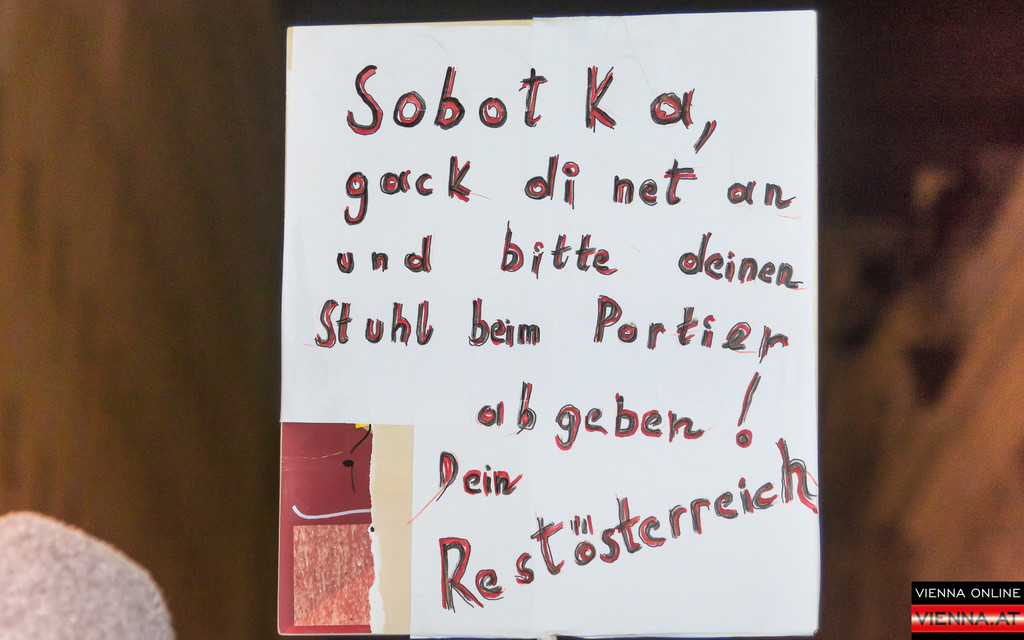 Sobotka,
gack di net an
und bitte deinen
Stuhl beim Portier
abgeben!
Dein
Restösterreich
VIENNA ONLINE
VIENNA.AT